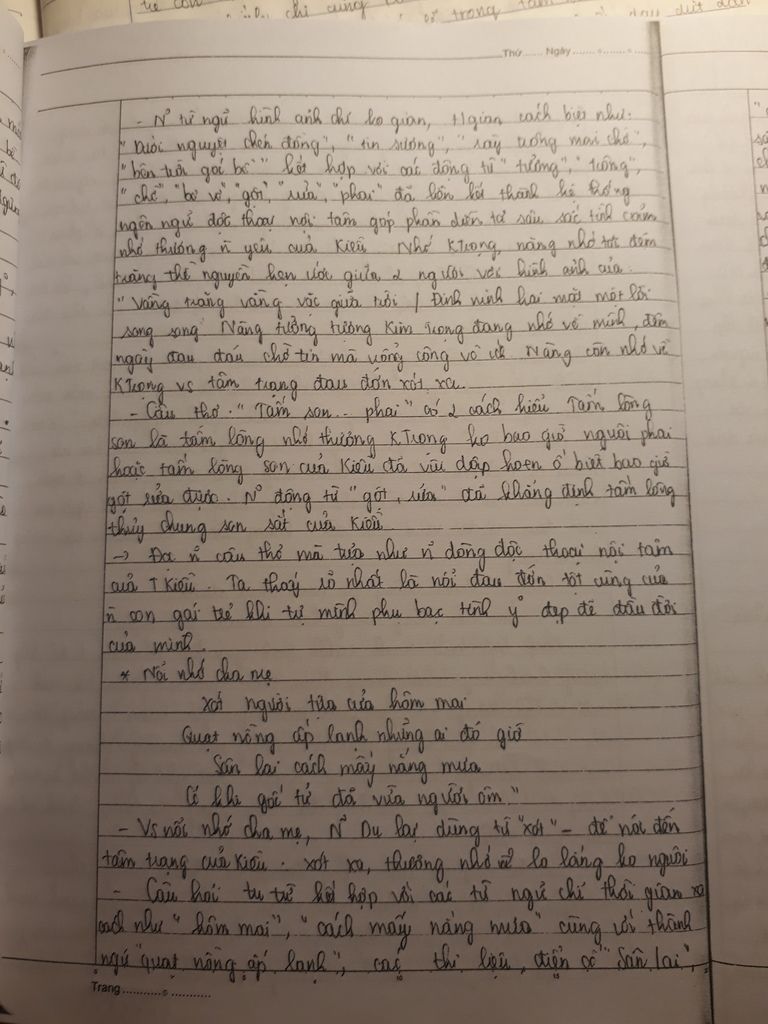 Thứ ...... Ngày ........
- N~ từ ngữ hình ảnh chỉ ko gian, tgian cách biệt như:
"Dưới nguyệt chén đồng", "tin sương", "rày trông mai chờ",
"bên trời góc bể" kết hợp với các động từ "tưởng", "trông",
"chờ", "bơ vơ", "gột", "rửa", "phai" đã thành hệ thống
ngôn ngữ độc thoại nội tâm góp phần diễn tả sâu sắc tình cảm
nhớ thương yêu của Kiều. Nhớ KTrọng, nàng nhớ tới đêm
trăng thề nguyền hẹn ước giữa 2 người với hình ảnh của:
"Vầng trăng vằng vặc giữa trời / Đinh ninh hai mặt một lời
song song Nàng tưởng tượng Kim Trọng đang nhớ về mình, đêm
ngày đau đáu chờ tin mà uổng công vô ích Nàng còn nhớ về
KTrọng vs tâm trạng đau đớn xót xa.
- Câu thơ "Tấm son .. phai" có 2 cách hiểu Tấm lòng
son là tấm lòng nhớ thương KTrọng ko bao giờ nguôi phai
hoặc tấm lòng son của Kiều đã vùi dập hoen ố biết bao giờ
gột rửa được. N~ động từ "gột, rửa" đã khẳng định tấm lòng
thủy chung son sắt của Kiều
→ câu thơ mà tựa như dòng độc thoại nội tâm
của T Kiều. Ta thấy rõ nhất là nỗi đau đớn tột cùng của
con gái trẻ khi tự mình phụ bạc tình y° đẹp đẽ đầu đời
của mình.
* Nỗi nhớ cha mẹ
Xót người tựa cửa hôm mai
Quạt nồng ấp lạnh những ai đó giờ
Sân lai cách mấy nắng mưa
Có khi gốc tử đã vừa người ôm"
- Vs nỗi nhớ cha mẹ, N~ Du lại dùng từ "xót" - để nói đến
tâm trạng của Kiều. xót xa, thương nhớ về lo lắng ko nguôi
- Câu hỏi tu từ kết hợp với các từ ngữ chỉ thời gian xa
cách như "hôm mai", "cách mấy nắng mưa" cùng với thành
ngữ "quạt nồng ấp lạnh", các thi liệu, điển cố "Sân lai",
Trang ........................